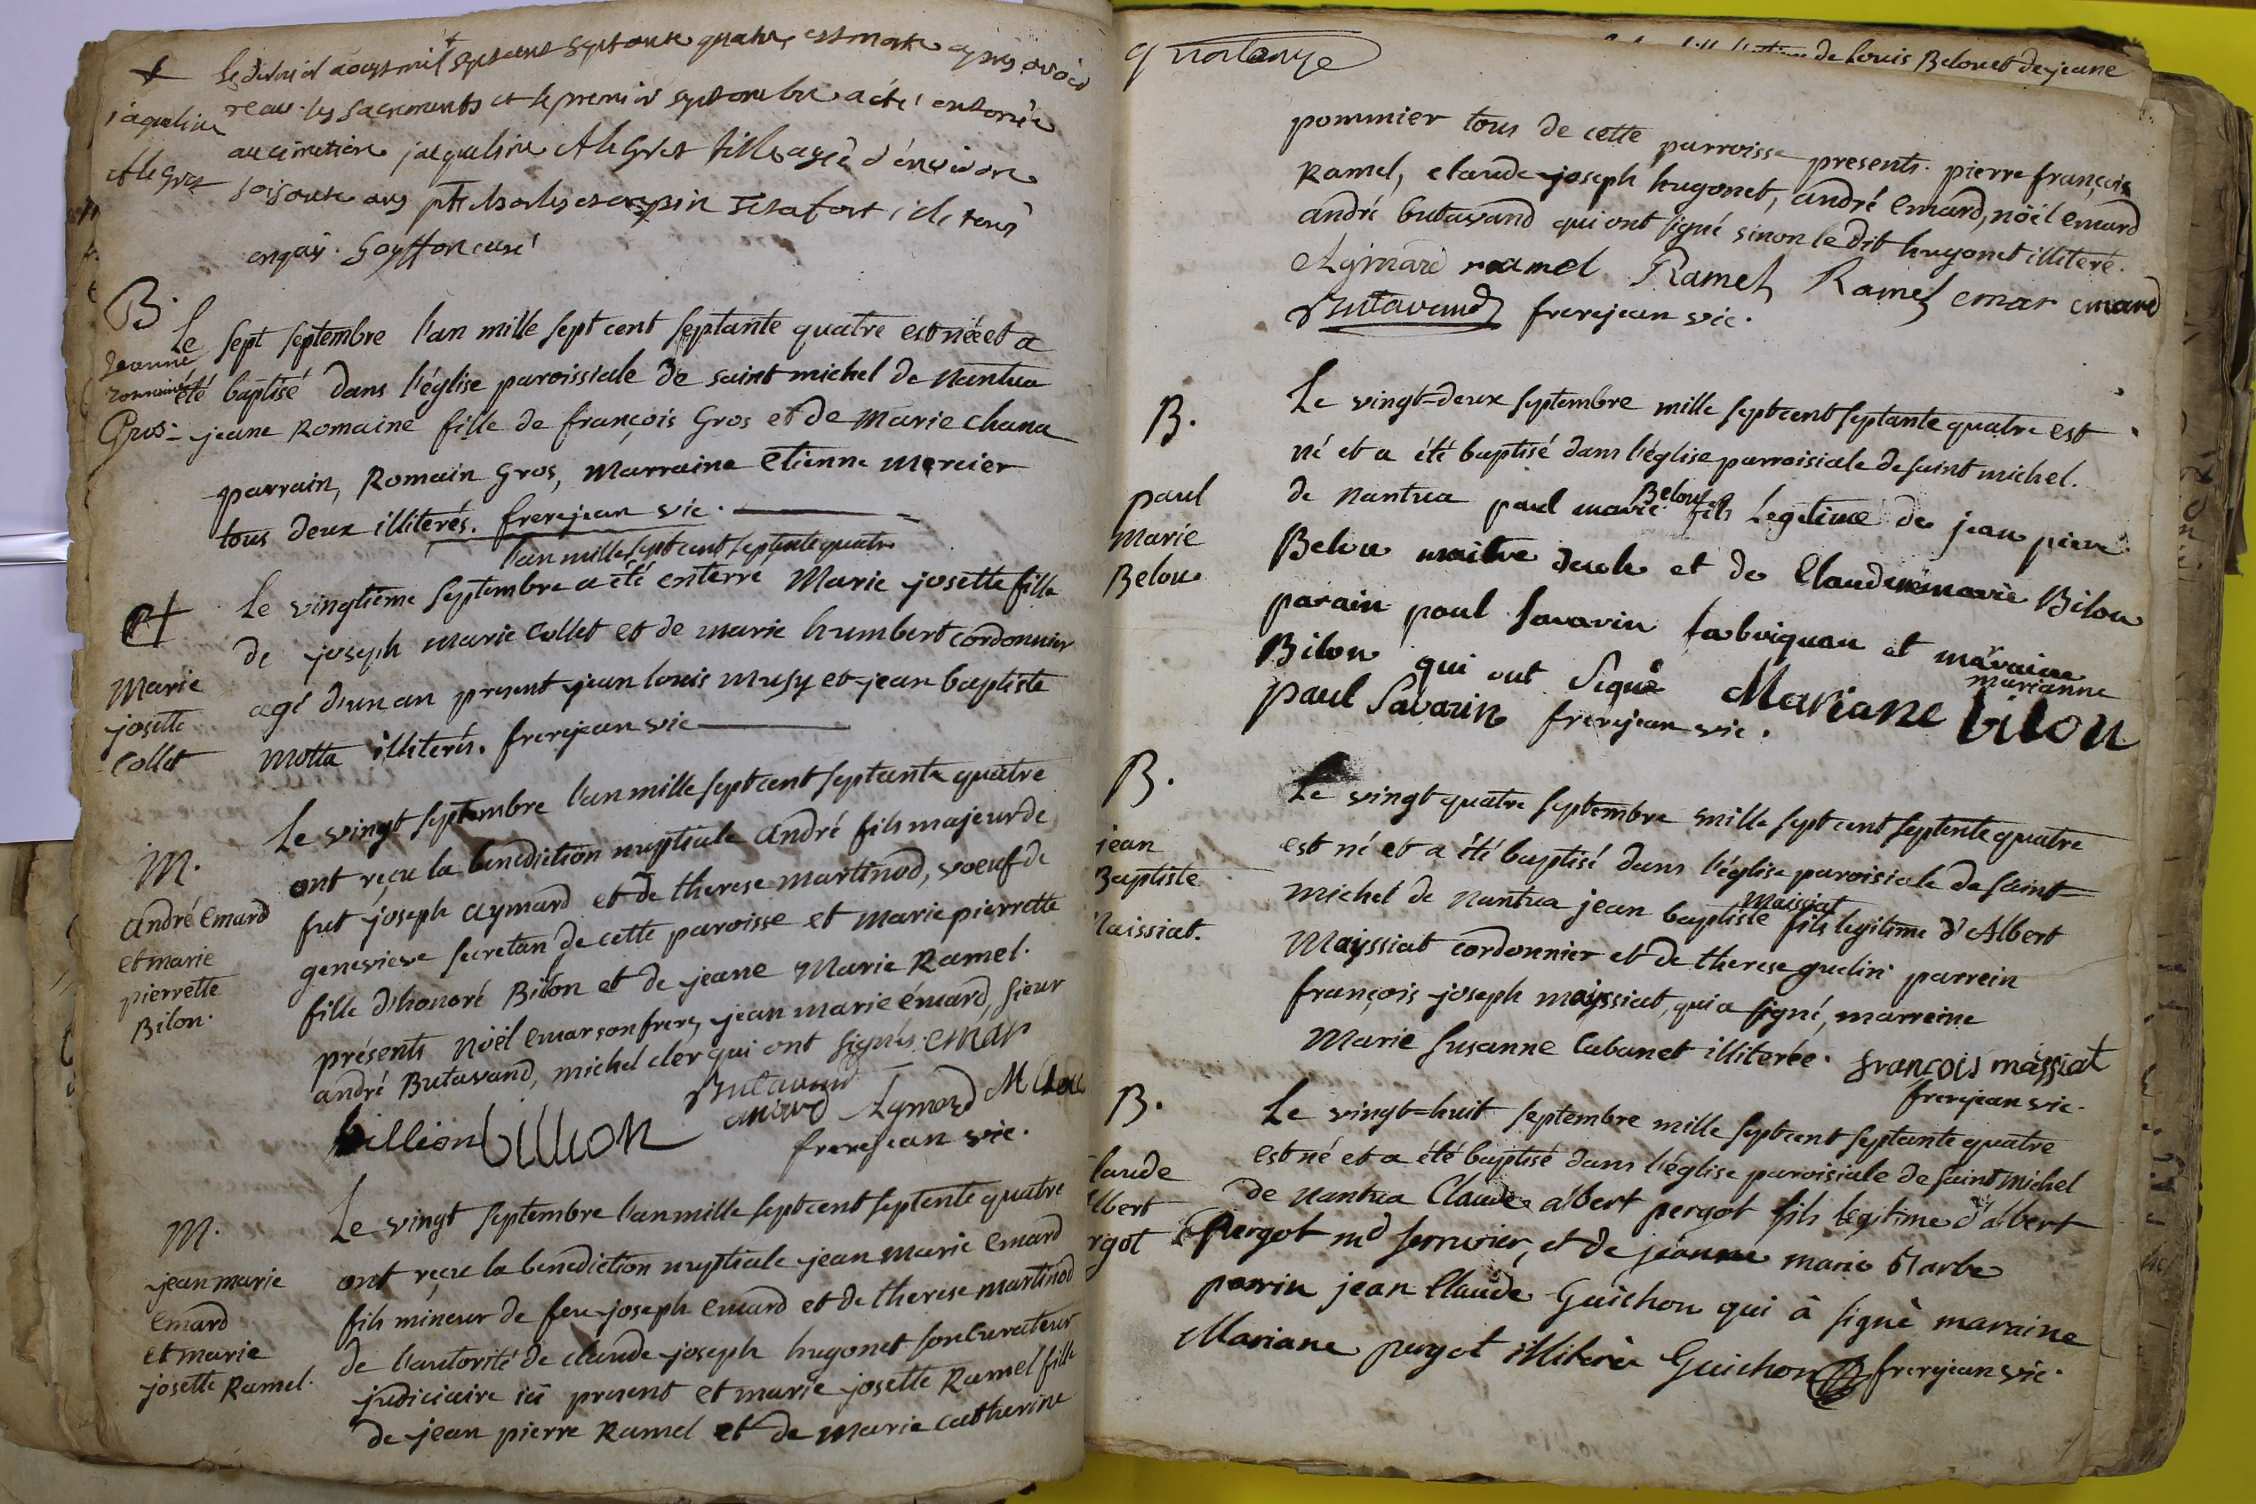 Le dernier aoust mil sept cent septante quatre, est morte apres avoir
jaqueline
receu les sacrements et le premier septembre a été enterrée
au cimetiere jacqueline Allegret fille agée d'environ
Allegret
soisante ans
goyffon curé
B.
Le sept septembre l'an mille sept cent septante quatre est née et a
jeanne
romaine
été baptisé dans l'église paroissiale de saint michel de Nantua
Gros
jeane Romaine fille de françois Gros et de Marie chana
parrain, Romain Gros, Marraine etienne Mercier
tous deux illiterés. frerejean vic.
l'an mille sept cent septente quatre
Le vingtieme septembre a été enterré Marie josette fille
de joseph Marie Collet et de marie humbert cordonnier
Marie
josette
Collet
agé d'un an present jean louis musy et jean baptiste
Motta illiterés. frerejean vic
M.
andré Emard
et marie
pierrette
Bilon.
Le vingt septembre l'an mille sept cent septante quatre
ont reçu la benediction nuptiale andré fils majeur de
fut joseph aymard et de therese martinod, voeuf de
genevieve secretan de cette paroisse et Marie pierrette
fille d'honoré Bilon et de jeane Marie Ramel.
présents Nöel emar son frere, jean marie émard, sieur
andré Butavand, michel cler qui ont signés. emar
Butavand
billion billion emard Aymard M Cler
frerejean vic.
M.
jean marie
Emard
et marie
josette Ramel.
Le vingt septembre l'an mille sept cent septente quatre
ont reçu la benediction nuptiale jean marie emard
fils mineur de feu joseph emard et de therese martinod
de l'autorité de claude joseph hugonet son curateur
judiciaire ici present et marie josette Ramel fille
de jean pierre Ramel et de Marie catherine
de Louis Belouet de jeane
pommier tous de cette parroisse presents. pierre françois
Ramel, claude joseph hugonet, andré emard, nöel emard
andré butavand qui ont signé sinon le dit hugonet illiteré.
Aymard ramel Ramel Ramel emar emard
Butavand frerejean vic.
B.
paul
marie
Belou
Le vingt=deux septembre mille sept cent septante quatre est
né et a été baptisé dans l'église parroisiale de saint michel.
Belou
de Nantua paul marie fils Legitime de jean piere
Belou maitre decole et de Claudine marie Bilou
parain paul Savarin fabriquan et maraine
marianne
Bilon qui ont Signé Mariane bilon
paul Savarin frerejean vic.
B.
jean
Baptiste
Maissiat.
Le vingt quatre septembre mille sept cent septente quatre
est né et a été baptisé dans l'église paroisiale de saint=
Maissiat
michel de Nantua jean baptiste fils legitime d'Albert
Mayssiat cordonnier et de therese guelin parrein
françois joseph mayssiat, qui a signé, marreine
Marie susanne Cabanet illiterée. françois massiat
frerejean vic.
B.
laude
lbert
rgot
Le vingt=huit septembre mille sept cent septante quatre
est né et a été baptisé dans l'église paroisiale de saint michel
de Nantua Claude albert pergot fils legitime d'albert
Pergot md serrurier, et de jeanne marie Barbe
parrin jean Claude Guichon qui à signè maraine
Mariane pergot illiterée Guichon frerejean vic.